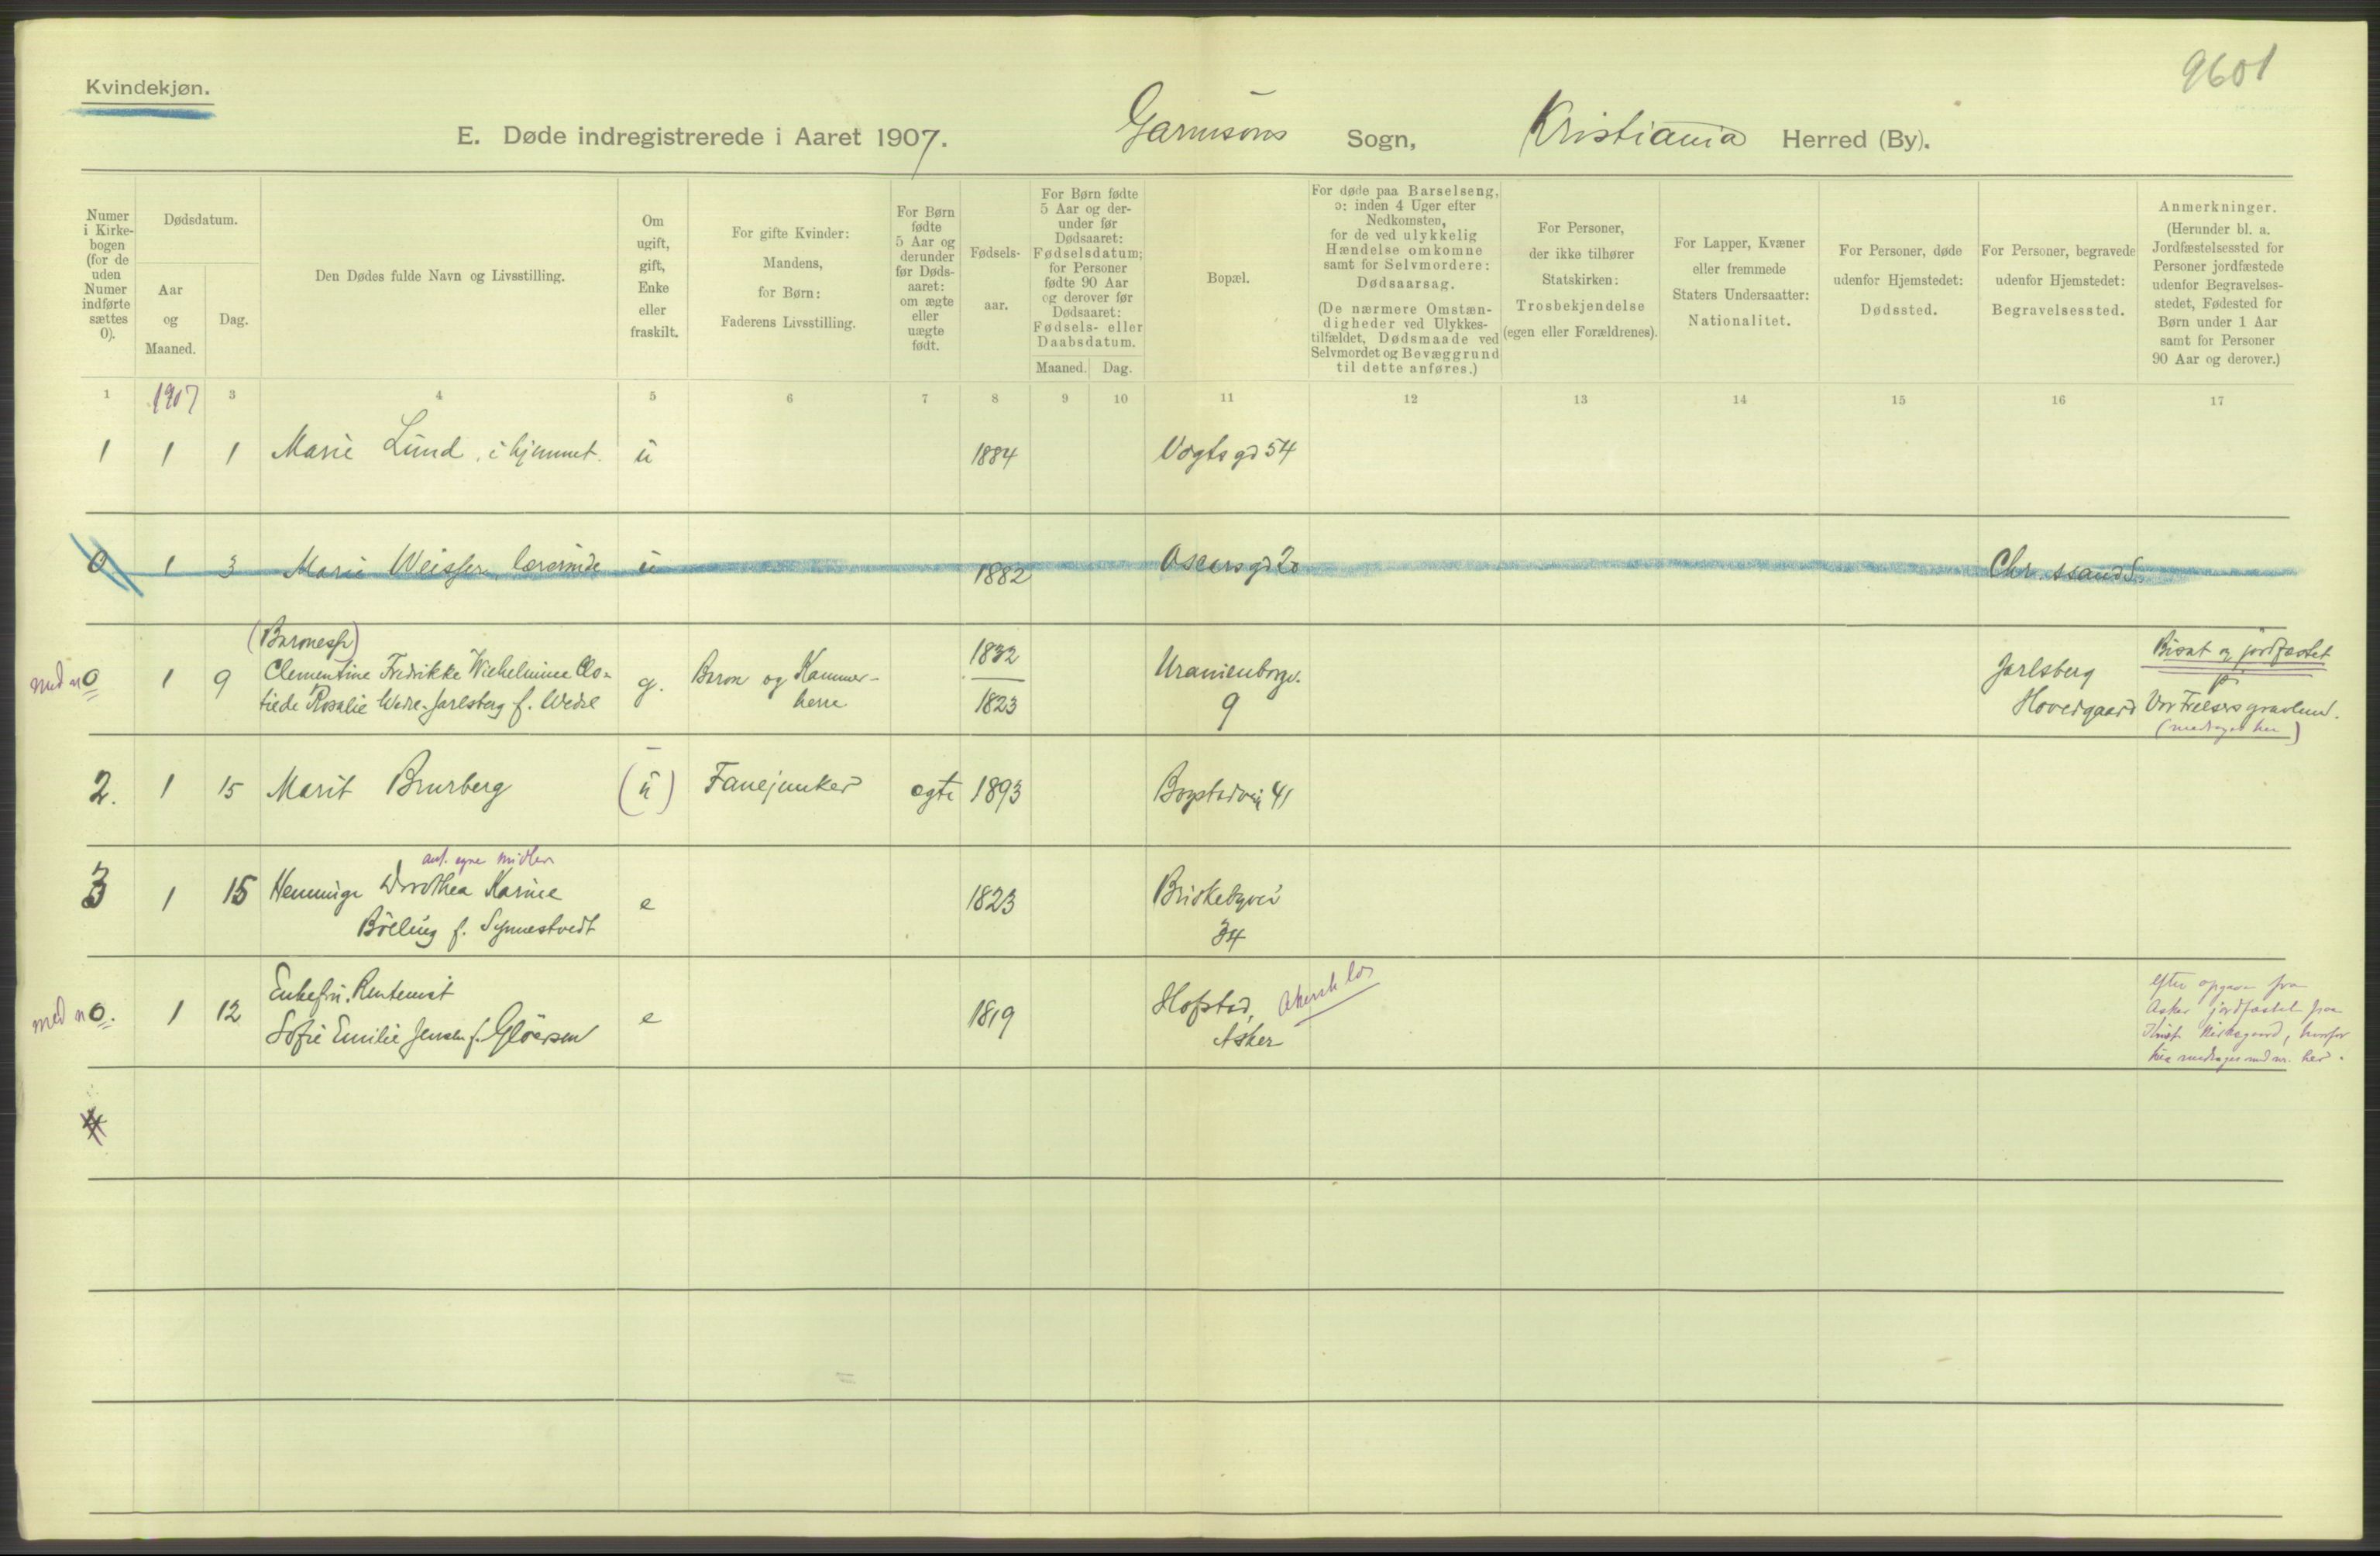 9601
Kvindekjøn.
E. Døde indregistrerede i Aaret 1907. Garnisons Sogn, Kristiania Herred (By).
Numer
i Kirke-
bogen
(for de
uden
Numer
indførte
sættes
0).
Dødsdatum.
Aar
og
Maaned.
Dag.
Den Dødes fulde Navn og Livsstilling.
Om
ugift,
gift,
Enke
eller
fraskilt.
For gifte Kvinder:
Mandens,
for Børn:
Faderens Livsstilling.
For Børn
fødte
5 Aar og
derunder
før Døds-
aaret:
om ægte
eller
uægte
født.
Fødsels-
aar.
For Børn fødte
5 Aar og der-
under før
Dødsaaret:
Fødselsdatum;
for Personer
fødte 90 Aar
og derover før
Dødsaaret:
Fødsels- eller
Daabsdatum.
Maaned. Dag.
Bopæl.
For døde paa Barselseng,
ɔ: inden 4 Uger efter
Nedkomsten,
for de ved ulykkelig
Hændelse omkomne
samt for Selvmordere:
Dødsaarsag.
(De nærmere Omstæn-
digheder ved Ulykkes-
tilfældet, Dødsmaade ved
Selvmordet og Bevæggrund
til dette anføres.)
For Personer,
der ikke tilhører
Statskirken:
Trosbekjendelse
(egen eller Forældrenes).
For Lapper, Kvæner
eller fremmede
Staters Undersaatter:
Nationalitet.
For Personer, døde
udenfor Hjemstedet:
Dødssted.
For Personer, begravede
udenfor Hjemstedet:
Begravelsessted.
Anmerkninger.
(Herunder bl. a.
Jordfæstelsessted for
Personer jordfæstede
udenfor Begravelses-
stedet, Fødested for
Børn under 1 Aar
samt for Personer
90 Aar og derover.)
1 1907 3 4 5 6 7 8 9 10 11 12 13 14 15 16 17
1 1 1 Marie Lund, i hjemmet. u 1884 Vogts gd 54
0 1 3 Marie Weisser, lærerinde u 1882 Oscarsgd 20 Chr.ssand S.
(Baronesse)
med n 0 1 9 Clementine Fredrikke Wilhelmine Clo-
tilde Rosalie Wedel-Jarlsberg f. Wedel g. Baron og Kammer-
herre 1832
1823 Uranienborgv.
9 Jarlsberg
Hovedgaard Bisat og jordfæstet
p.
Vor Frelsers gravlund.
(medtages her)
2. 1 15 Marit Brurberg (u) Fanejunker ægte 1893 Bogstadvei 41
ant. egne midler
3 1 15 Henninge Dorothea Karine
Böeling f. Synnestvedt e 1823 Briskebyvei
34
med n 0. 1 12 Enkefru. Rentenist
Sofie Emilie Jensen f. Gløersen e 1819 Hofstad,
Asker Akershus
efter opgave fra
Asker jordfæstet paa
kirkegaard, hvorfor
medtages med nr. her.
4